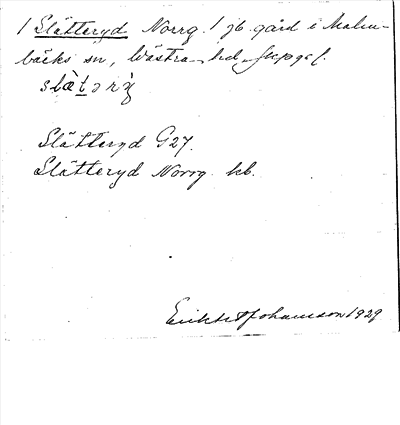 1 Slätteryd Norrg. 1 jb. gård i Malm-
bäcks sn, Västra hd, Jkpgs l.
slä̀tərỳ
Slätteryd G27.
Slätteryd Norrg. kb.
Erik H Johansson 1929